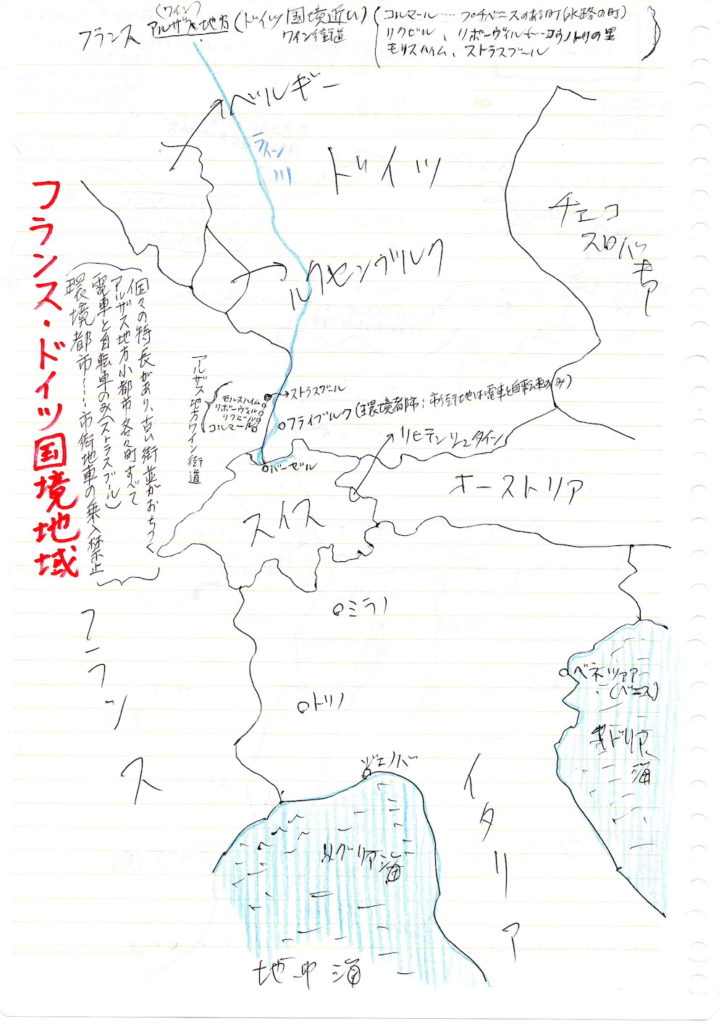 (ワイン)
フランス アルザス地方 (ドイツ国境近い)
ワイン街道
コルマール…プチベニスのある町(水路の町)
リクビル、リボーヴィル…コウノトリの里
モルスハイム、ストラスブール
ベルギー
ライン川
ドイツ
チェコ
スロバキア
ルクセンブルク
フランス・ドイツ国境地域
個々の特長があり、古い街並がおちつく
アルザス地方小都市各々町すべて
電車と自転車のみ(ストラスブル)
環境都市…市街地車の乗入禁止
アルザス地方ワイン街道
ストラスブール
モルスハイム
リボーヴィル
リクビール
コルマール
フライブルク(環境都市:市街地は電車と自転車のみ)
バーゼル
リヒテンシュタイン
スイス
オーストリア
ミラノ
トリノ
ジェノバ
フランス
イタリア
ベネツィア
(ベニス)
アドリア海
リグリア海
地中海